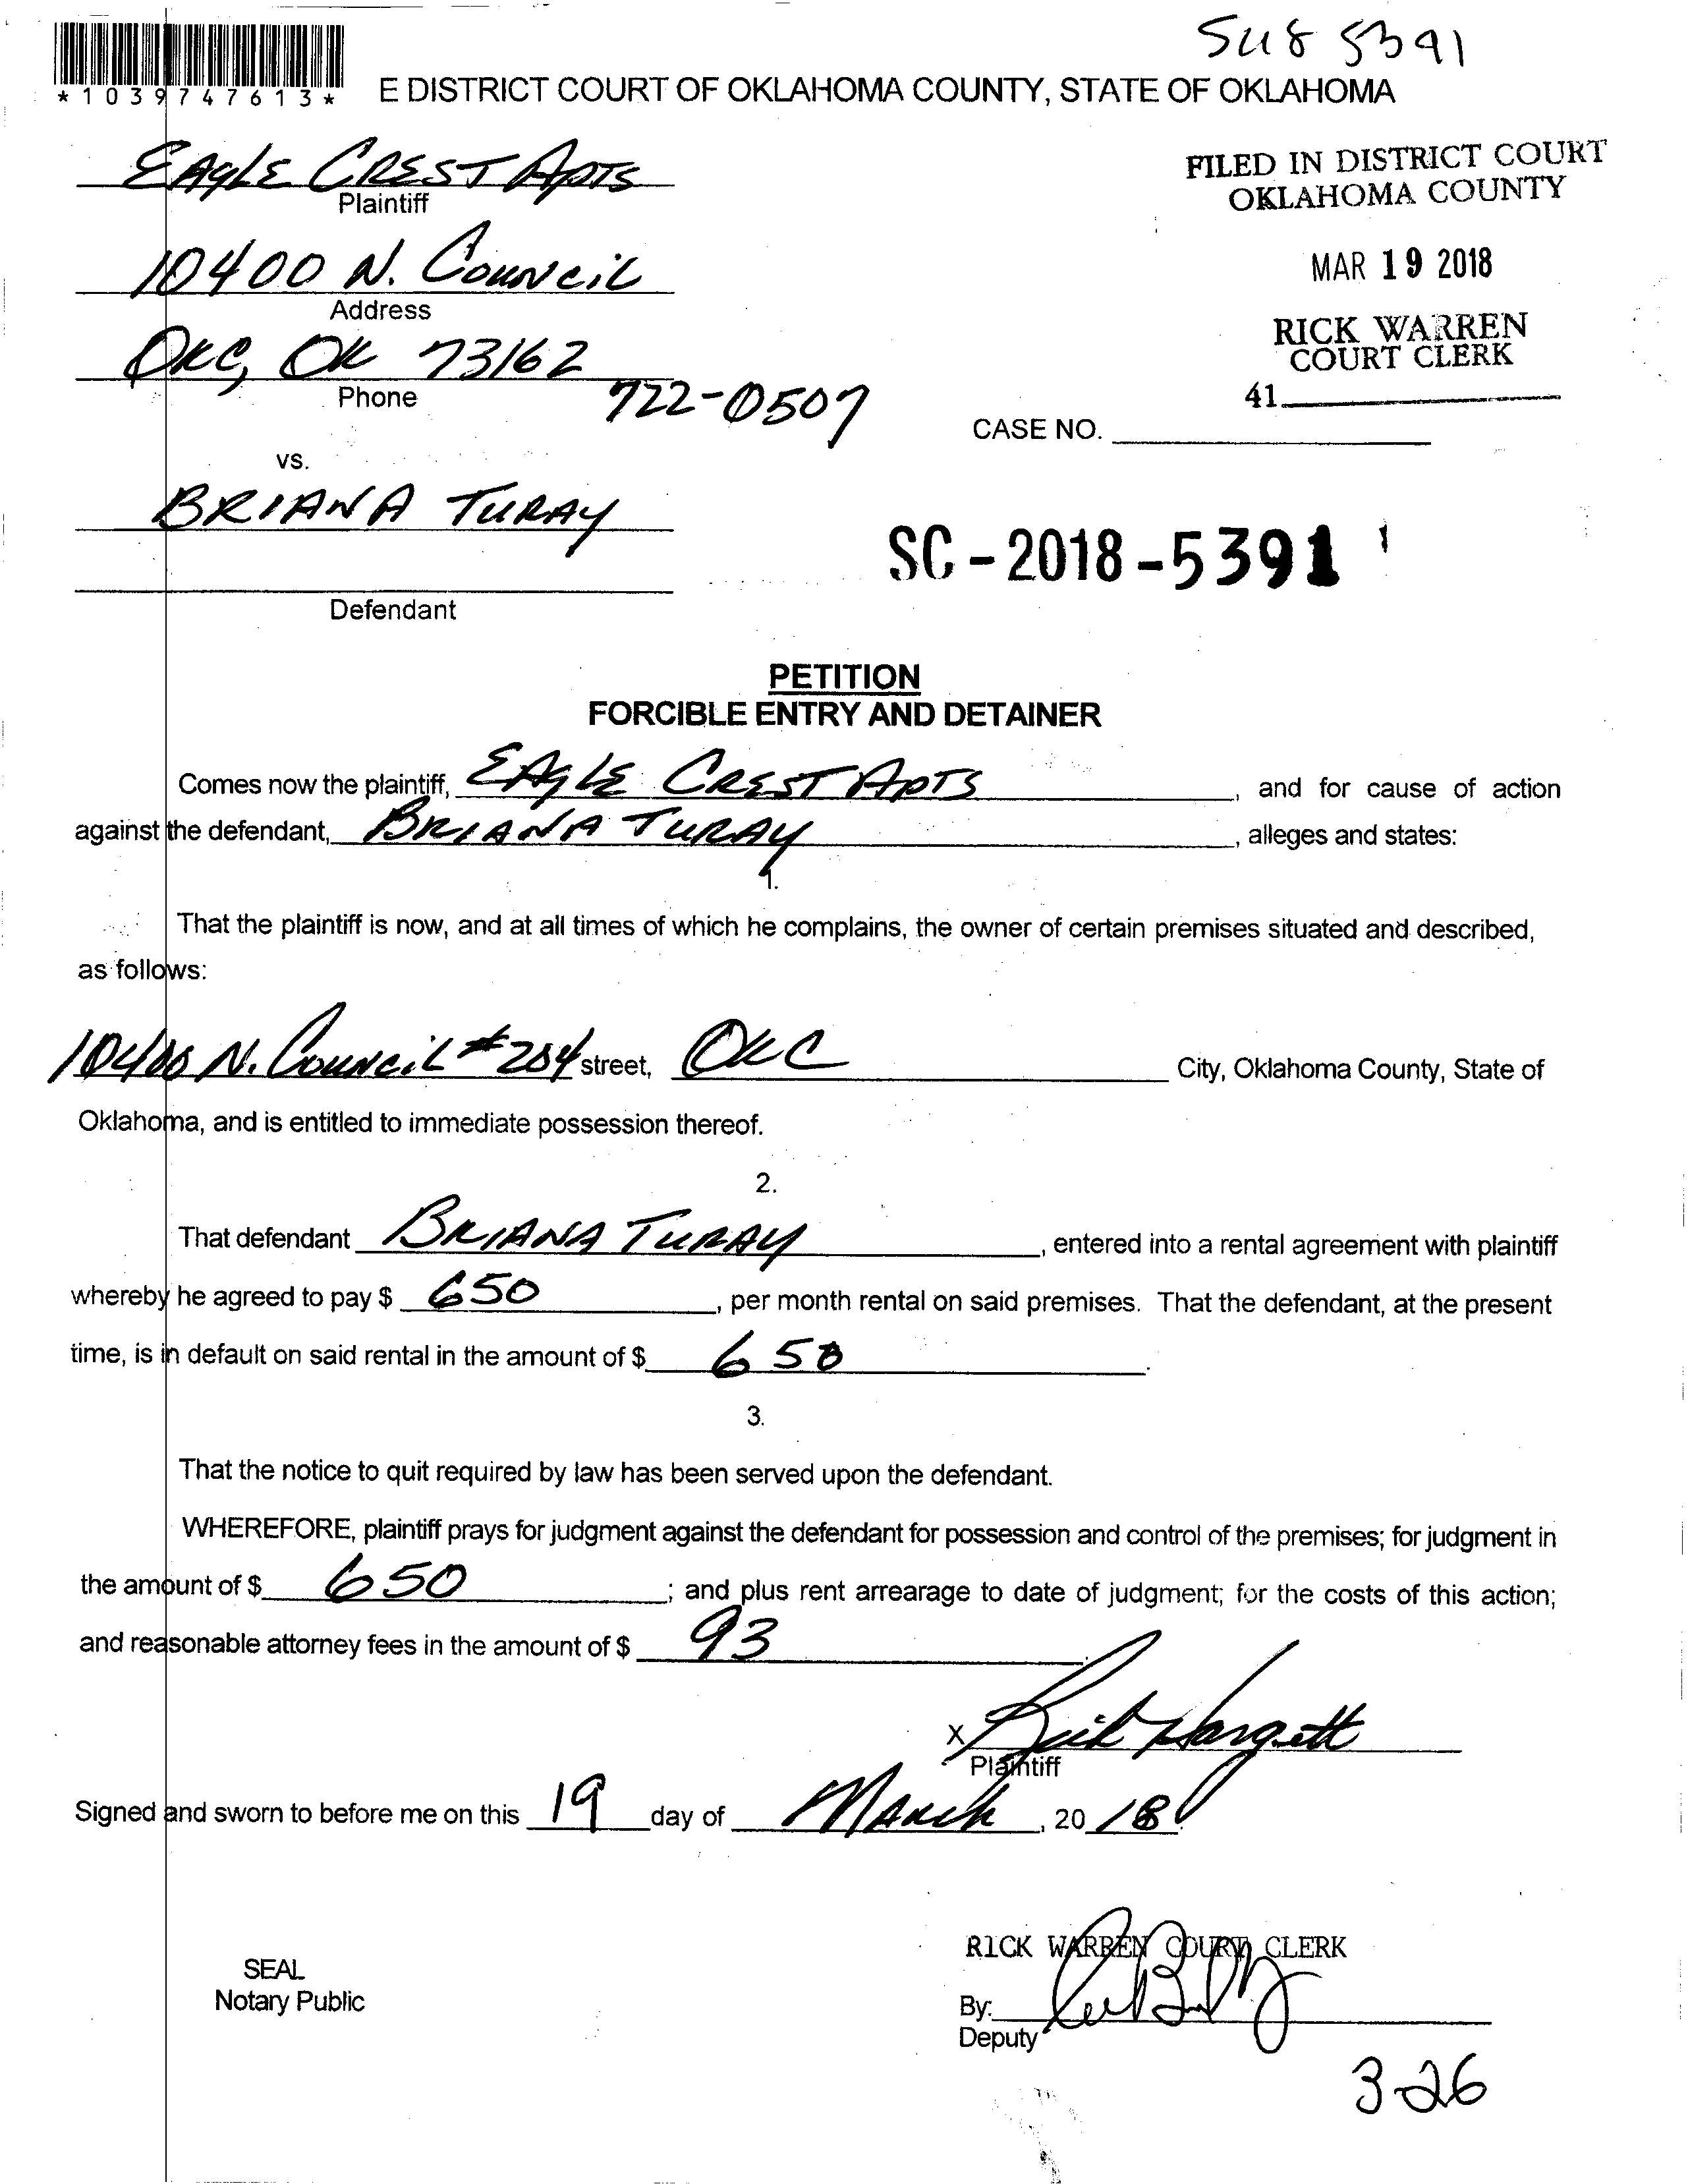 SC18 5391
*1039747613*
E DISTRICT COURT OF OKLAHOMA COUNTY, STATE OF OKLAHOMA
EAGLE CREST APTS
Plaintiff
FILED IN DISTRICT COURT
OKLAHOMA COUNTY
10400 N. COUNCIL
Address
MAR 19 2018
OKC, OK 73162
Phone
722-0507
RICK WARREN
COURT CLERK
41
CASE NO.
vs.
BRIANA TURAY
SC-2018-5391
Defendant
PETITION
FORCIBLE ENTRY AND DETAINER
Comes now the plaintiff, EAGLE CREST APTS, and for cause of action
against the defendant, BRIANA TURAY, alleges and states:
1.
That the plaintiff is now, and at all times of which he complains, the owner of certain premises situated and described,
as follows:
10400 N. COUNCIL #204 street, OKC City, Oklahoma County, State of
Oklahoma, and is entitled to immediate possession thereof.
2.
That defendant BRIANA TURAY, entered into a rental agreement with plaintiff
whereby he agreed to pay $ 650, per month rental on said premises. That the defendant, at the present
time, is in default on said rental in the amount of $ 650.
3.
That the notice to quit required by law has been served upon the defendant.
WHEREFORE, plaintiff prays for judgment against the defendant for possession and control of the premises; for judgment in
the amount of $ 650; and plus rent arrearage to date of judgment; for the costs of this action;
and reasonable attorney fees in the amount of $ 93.
X Rick Hargett
Plaintiff
Signed and sworn to before me on this 19 day of MARCH, 20 18.
RICK WARREN COURT CLERK
SEAL
Notary Public
By:
Deputy
3-26